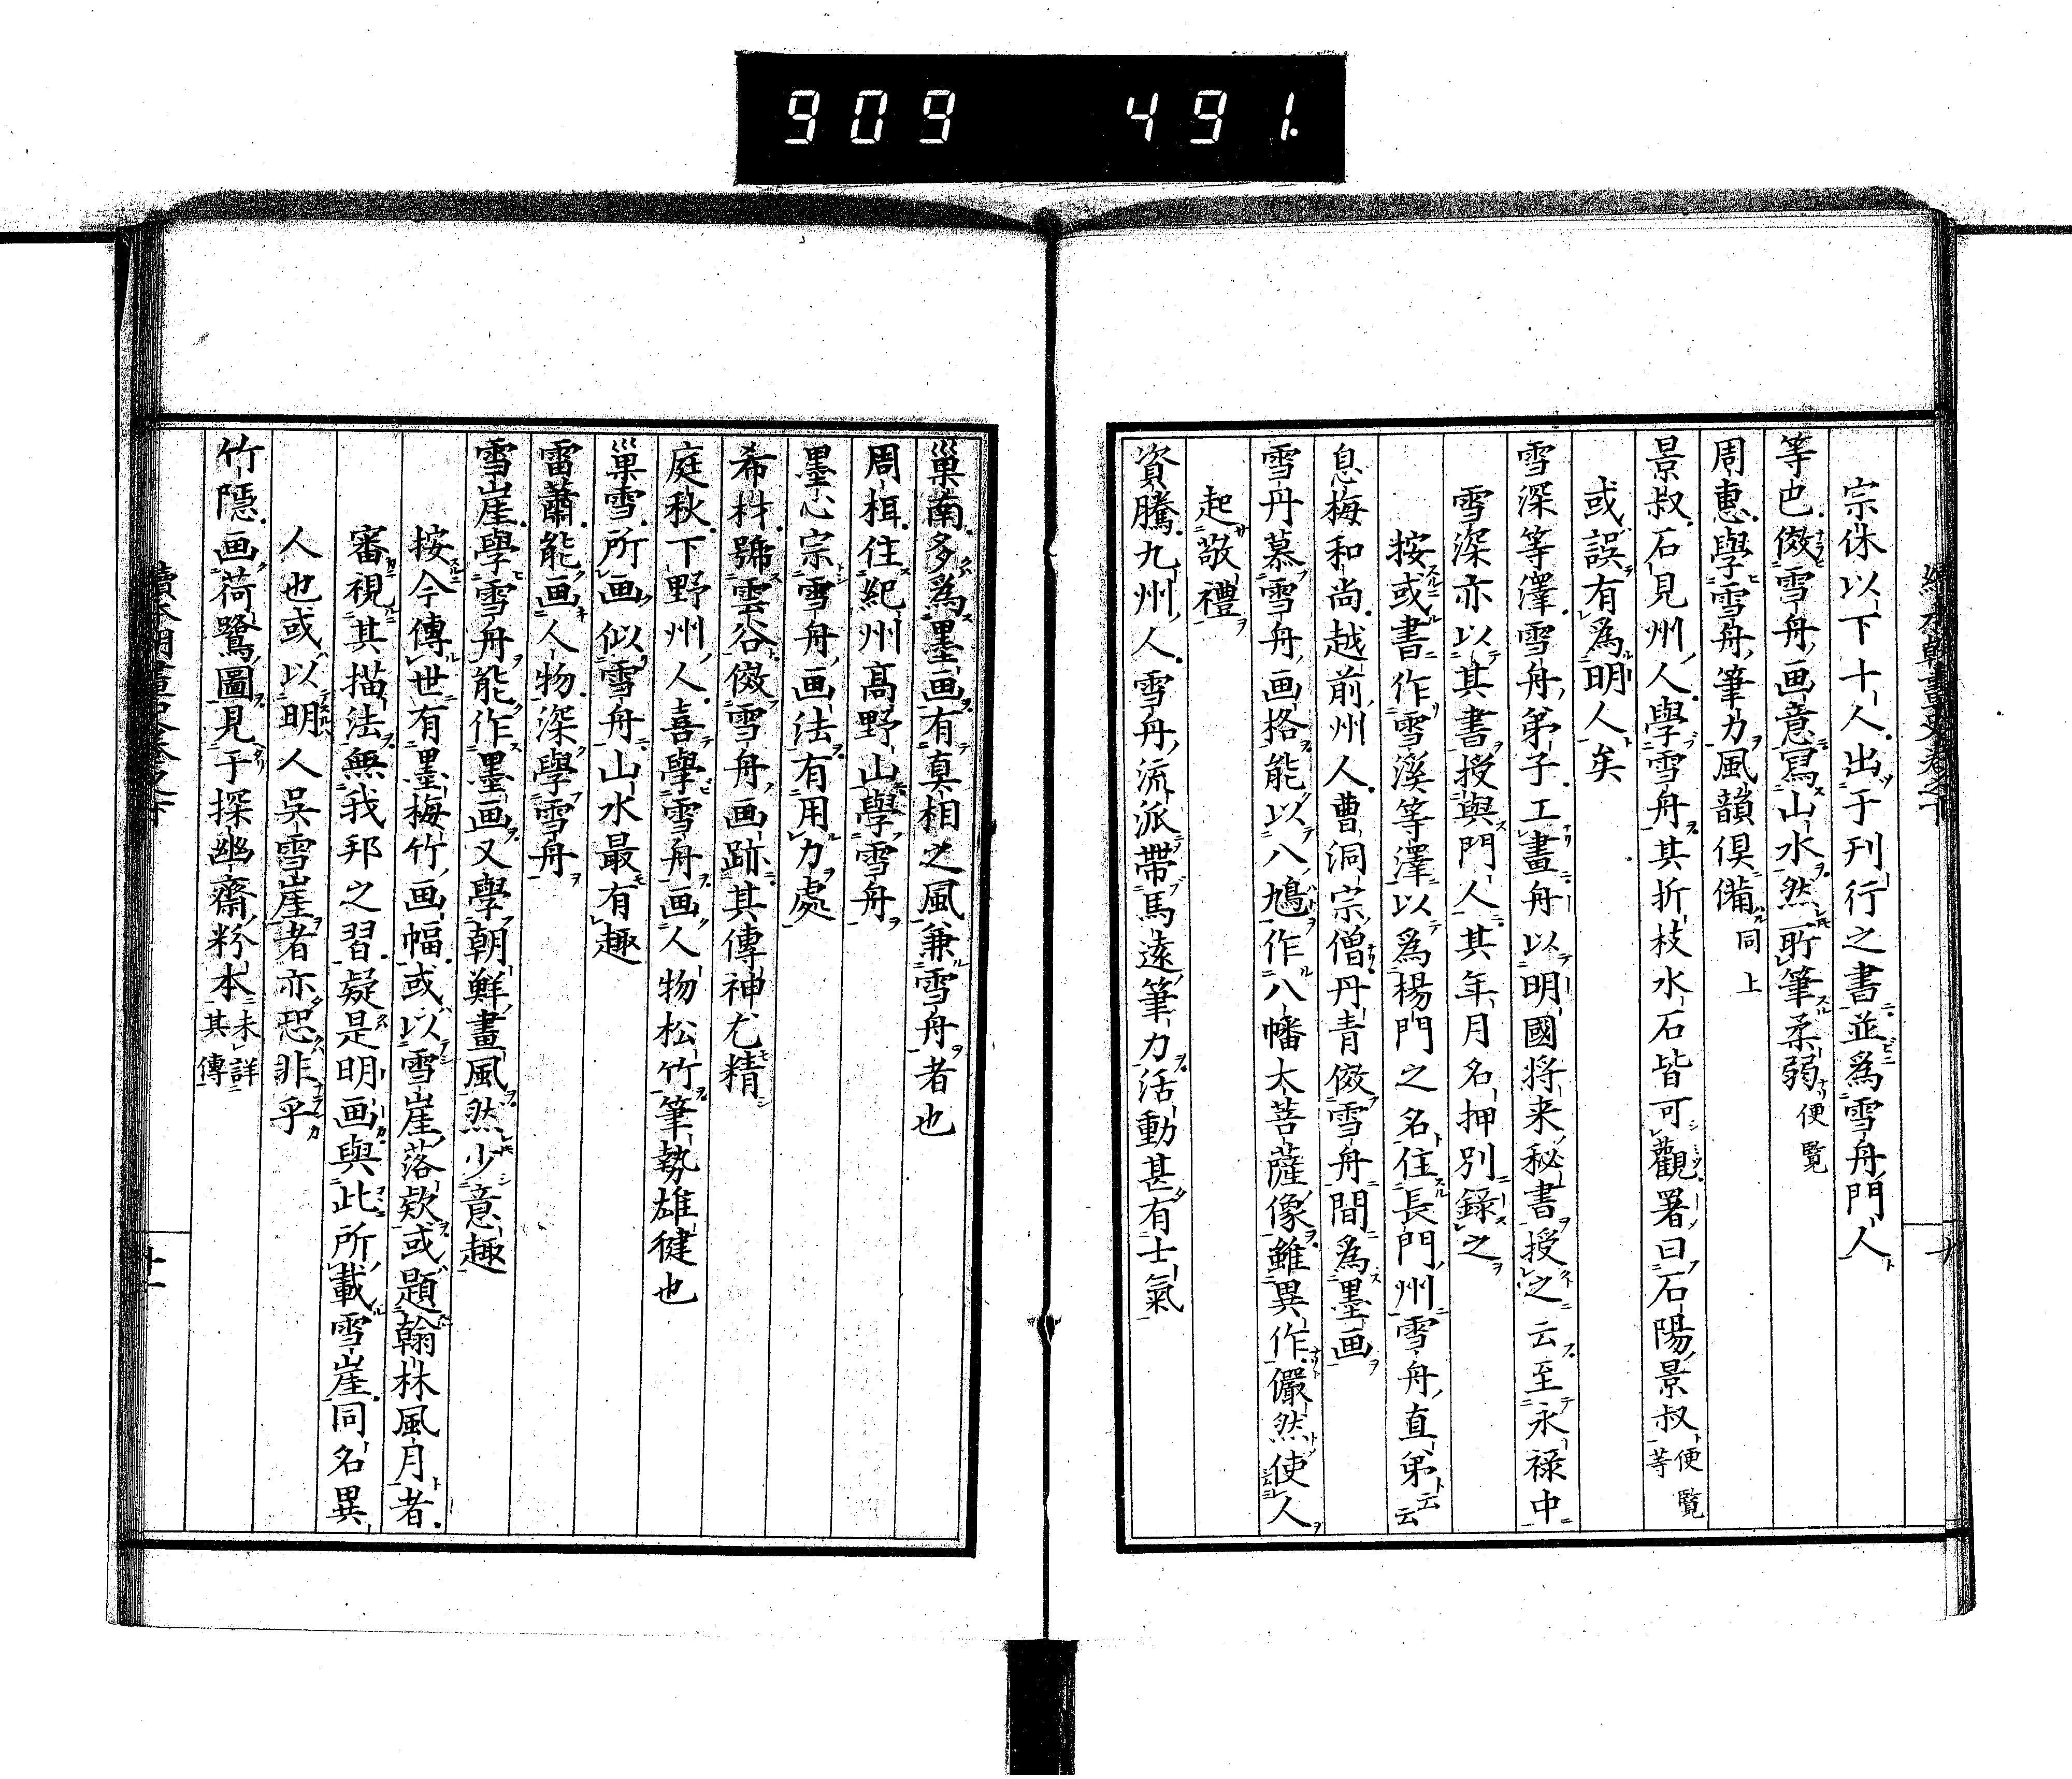 909 491.
宗休以下十人出于刊行之書並爲雪舟門人
等巴倣雪舟画意冩山水然所筆柔弱便覧
周惠學雪舟筆力風韻俱備同上
景叔石見州人學雪舟其折枝水石皆可觀署曰石陽景叔便覧等
或誤有爲明人矣
雪深等澤雪舟弟子工畫舟以明國将来秘書授之云至永禄中
雪深亦以其書授與門人其年月名押別錄之
按或書作雪溪等澤以爲楊門之名住長門州雪舟直弟云云
息梅和尚越前州人曹洞宗僧丹青倣雪舟間爲墨画
雪丹慕雪舟画格能以八鳩作八幡大菩薩像雖異作儼然使人
起敬禮
資騰九州人雪舟流派帶馬遠筆力活動甚有士氣
巢蘭多爲墨画有真相之風兼雪舟者也
周楫住紀州高野山學雪舟
墨心宗雪舟画法有用力處
希材號雲谷倣雪舟画跡其傳神尤精
庭秋下野州人喜學雪舟画人物松竹筆勢雄健也
巢雪所画似雪舟山水最有趣
雷蕭能画人物深學雪舟
雪崖學雪舟能作墨画又學朝鮮畫風然少意趣
按今傳世有墨梅竹画幅或以雪崖落款或題翰林風月者
審視其描法無我邦之習疑是明画與此所載雪崖同名異
人也或以明人呉雪崖者亦恐非乎
竹隱画荷鷺圖見于探幽齋粉本未詳其傳